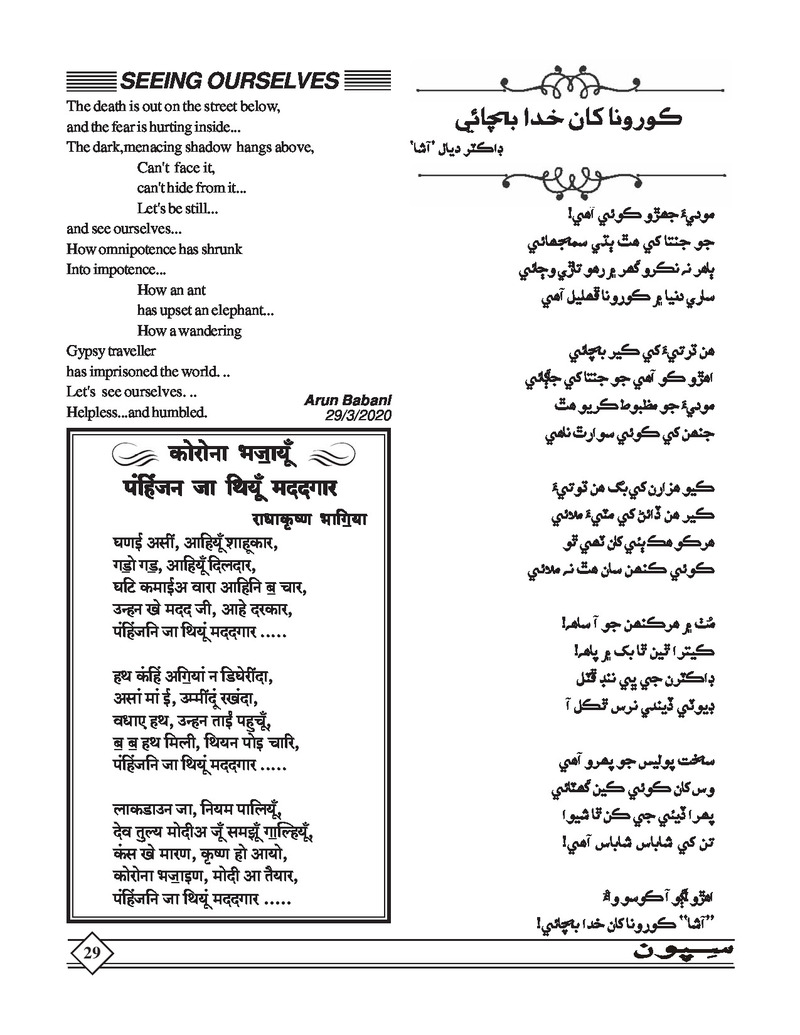 SEEING OURSELVES
The death is out on the street below,
and the fear is hurting inside...
The dark,menacing shadow hangs above,
Can't face it,
can't hide from it...
Let's be still...
and see ourselves...
How omnipotence has shrunk
Into impotence...
How an ant
has upset an elephant...
How a wandering
Gypsy traveller
has imprisoned the world. ..
Let's see ourselves. ..
Helpless...and humbled.
Arun Babani
29/3/2020
कोरोना भॼायूँ
पंहिंजन जा थियूँ मददगार
राधाकृष्ण भाॻिया
घणई असीं, आहियूँ शाहूकार,
गॾो गॾ, आहियूँ दिलदार,
घटि कमाईअ वारा आहिनि ॿ चार,
उन्हन खे मदद जी, आहे दरकार,
पंहिंजनि जा थियूं मददगार .....
हथ कंहिं अॻियां न डिघेरींदा,
असां मां ई, उम्मींदूं रखंदा,
वधाए हथ, उन्हन ताईं पहुचूँ,
ॿ ॿ हथ मिली, थियन पोइ चारि,
पंहिंजनि जा थियूं मददगार .....
लाकडाउन जा, नियम पालियूँ,
देव तुल्य मोदीअ जूँ समझूँ ॻाल्हियूँ,
कंस खे मारण, कृष्ण हो आयो,
कोरोना भॼाइण, मोदी आ तैयार,
पंहिंजनि जा थियूं मददगार .....
ڪورونا کان خدا بچائي
ڊاڪٽر ديال ’آشا‘
موديءَ جهڙو ڪوئي آهي!
جو جنتا کي هٿ ٻڌي سمجهائي
ٻاهر نہ نڪرو گهر ۾ رهو تاڙي وڄائي
ساري دنيا ۾ ڪورونا ڦهليل آهي
هن ڌرتيءَ کي ڪير بچائي
اهڙو ڪو آهي جو جنتا کي جاڳائي
موديءَ جو مظبوط ڪريو هٿ
جنهن کي ڪوئي سوارٿ ناهي
ڪيو هزارن کي بگ هن ٿو تيءَ
ڪير هن ڏائڻ کي مٽيءَ ملائي
هرڪو هڪٻئي کان ٽهي ٿو
ڪوئي ڪنهن سان هٿ نہ ملائي
مُٺ ۾ هرڪنهن جو آ ساهہ!
ڪيترا ٿين ٿا بک ۾ پاهہ!
ڊاڪٽرن جي ڀي ننڊ ڦٽل
ڊيوٽي ڏيندي نرس ٿڪل آ
سخت پوليس جو پهرو آهي
وس کان ڪوئي ڪين گهٽائي
پهرا ڏيئي جي ڪن ٿا شيوا
تن کي شاباس شاباس آهي!
اهڙو لڳو آڪوسو واءُ
”آشا“ ڪورونا کان خدا بچائي!
29
سِپون